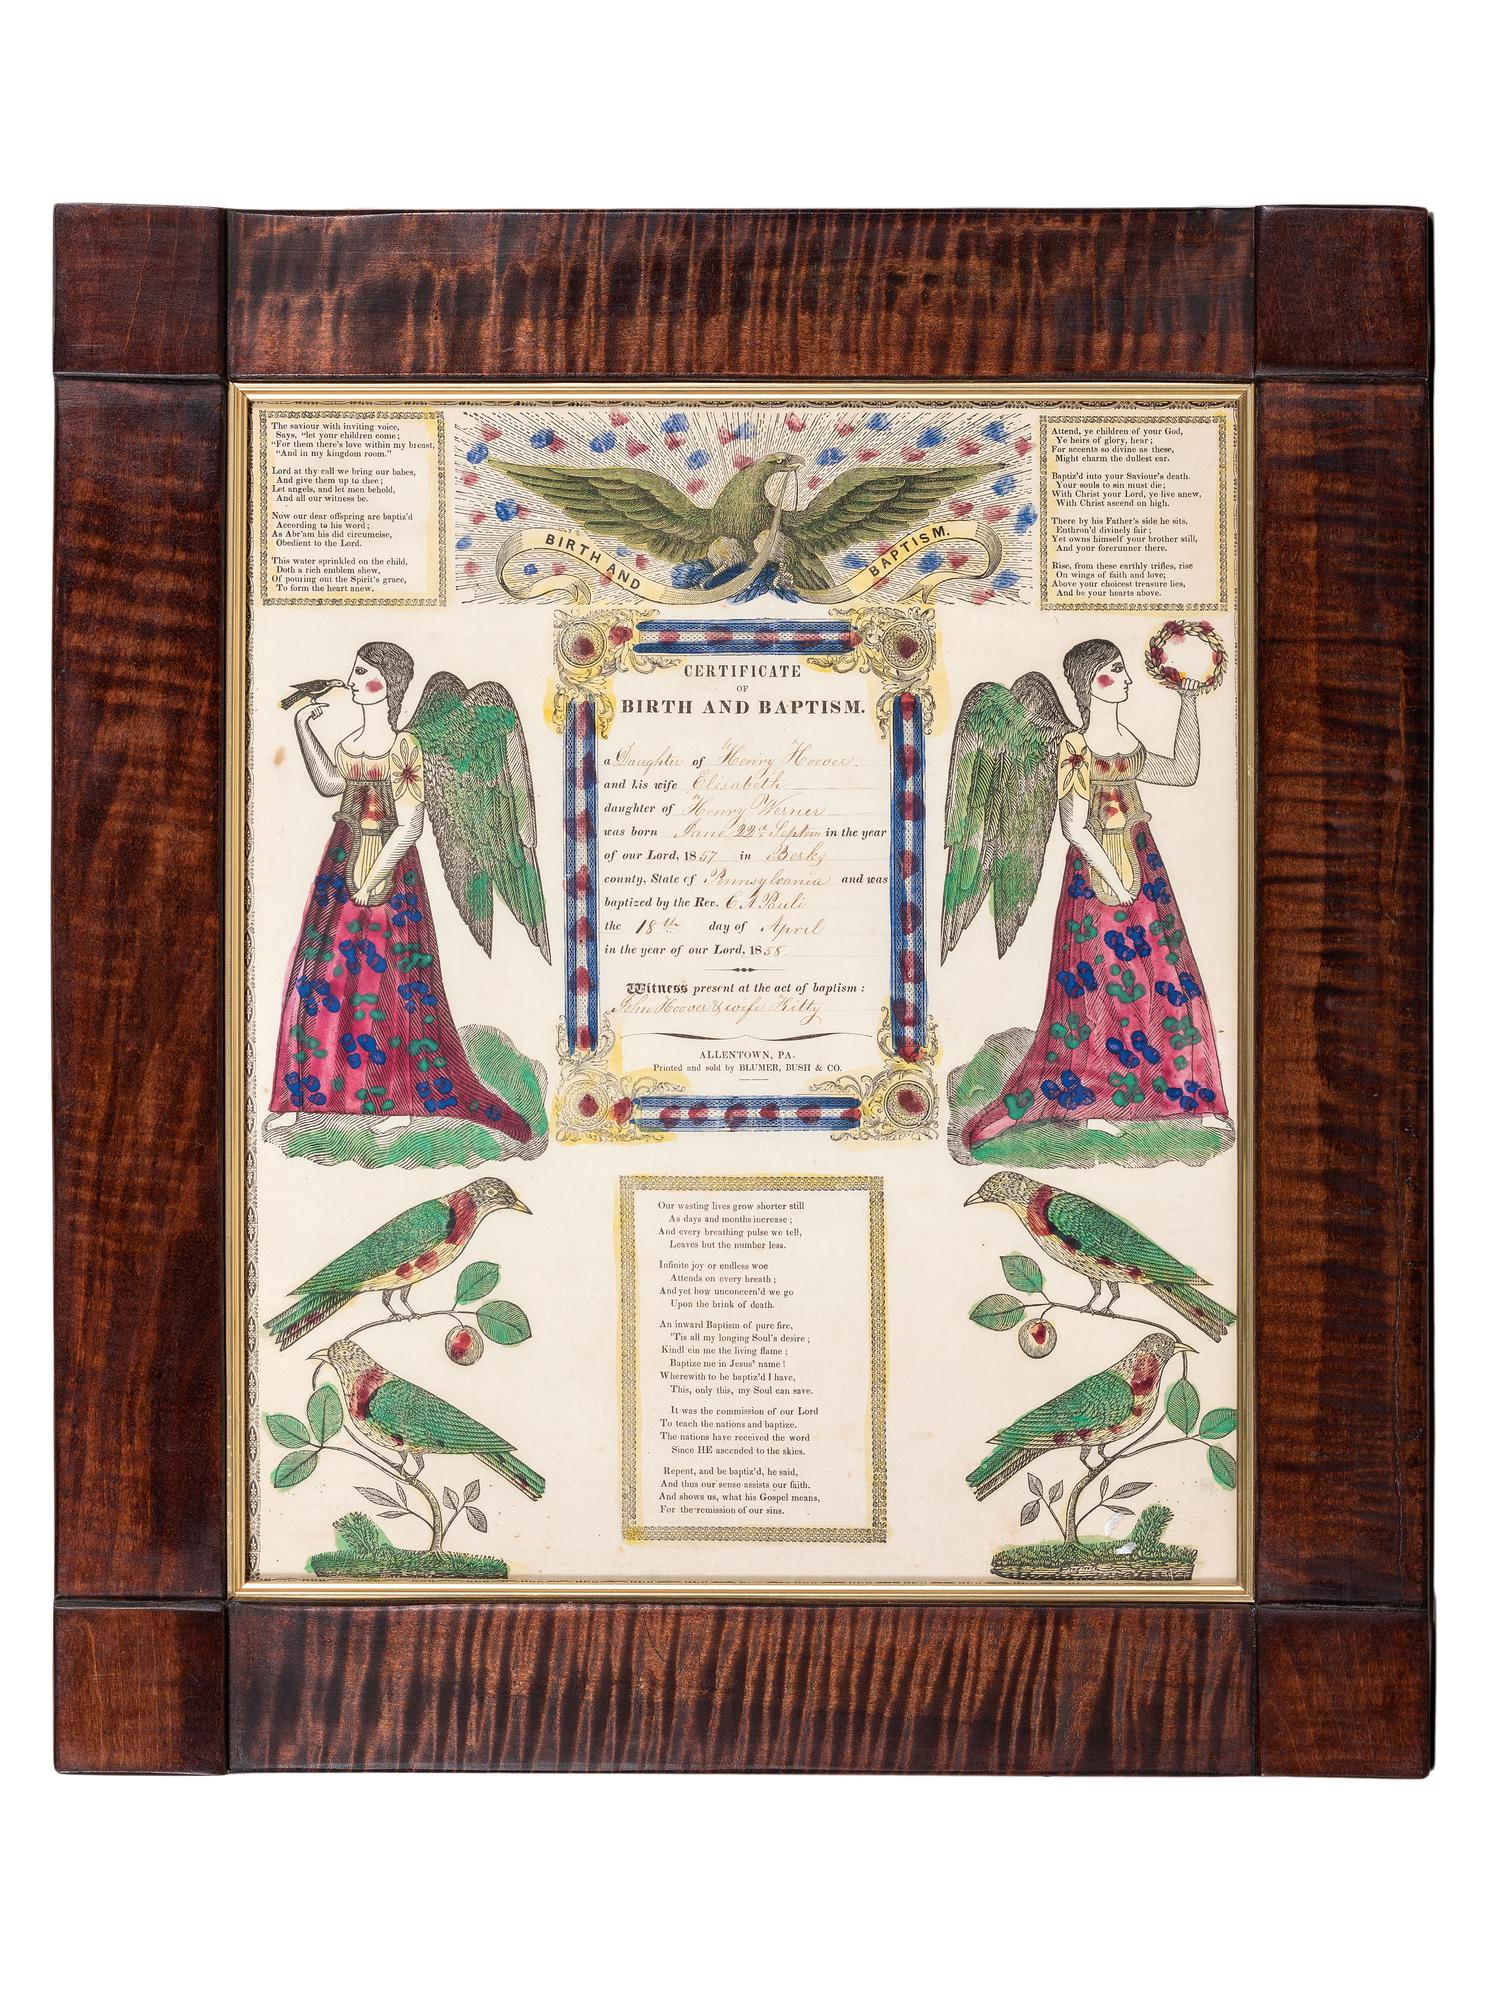 The saviour with inviting voice,
Says, "let your children come;
"For them there's love within my breast,
"And in my kingdom room."
Lord at thy call we bring our babes,
And give them up to thee;
Let angels, and let men behold,
And all our witness be.
Now our dear offspring are baptiz'd
According to his word;
As Abr'am his did circumcise,
Obedient to the Lord.
This water sprinkled on the child,
Doth a rich emblem shew,
Of pouring out the Spirit's grace,
To form the heart anew.
BIRTH AND BAPTISM.
Attend, ye children of your God,
Ye heirs of glory, hear;
For accents so divine as these,
Might charm the dullest ear.
Baptiz'd into your Saviour's death.
Your souls to sin must die;
With Christ your Lord, ye live anew,
With Christ ascend on high.
There by his Father's side he sits,
Enthron'd divinely fair;
Yet owns himself your brother still,
And your forerunner there.
Rise, from these earthly trifles, rise
On wings of faith and love;
Above your choicest treasure lies,
And be your hearts above.
CERTIFICATE
OF
BIRTH AND BAPTISM.
a Daughter of Henry Hoover.
and his wife Elisabeth
daughter of Henry Werner
was born Jane 22d Septem in the year
of our Lord, 1857 in Berks
county, State of Pennsylvania and was
baptized by the Rev. C A Pauli
the 18th day of April
in the year of our Lord, 1858.
Witness present at the act of baptism:
John Hoover & wife Kitty
ALLENTOWN, PA.
Printed and sold by BLUMER, BUSH & CO.
Our wasting lives grow shorter still
As days and months increase;
And every breathing pulse we tell,
Leaves but the number less.
Infinite joy or endless woe
Attends on every breath;
And yet how unconcern'd we go
Upon the brink of death.
An inward Baptism of pure fire,
'Tis all my longing Soul's desire;
Kindl ein me the living flame;
Baptize me in Jesus' name!
Wherewith to be baptiz'd I have,
This, only this, my Soul can save.
It was the commission of our Lord
To teach the nations and baptize.
The nations have received the word
Since HE ascended to the skies.
Repent, and be baptiz'd, he said,
And thus our sense assists our faith.
And shows us, what his Gospel means,
For the remission of our sins.